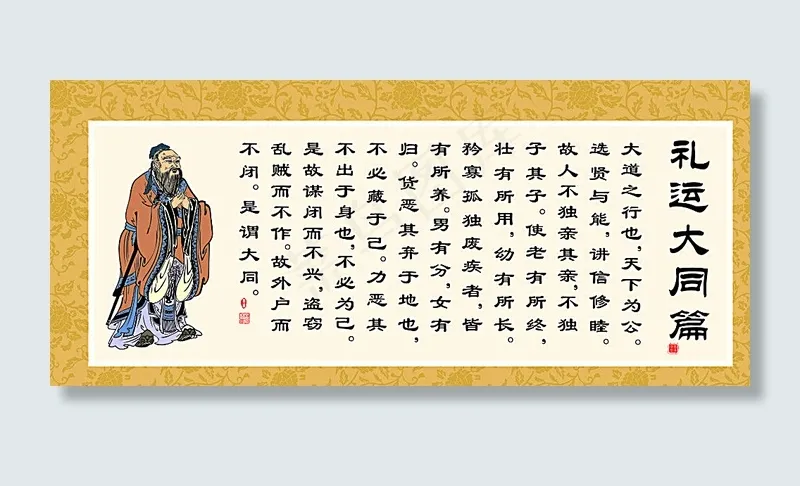 礼运大同篇
大道之行也，天下为公。
选贤与能，讲信修睦。
故人不独亲其亲，不独
子其子。使老有所终，
壮有所用，幼有所长。
矜寡孤独废疾者，皆
有所养。男有分，女有
归。货恶其弃于地也，
不必藏于己。力恶其
不出于身也，不必为己。
是故谋闭而不兴，盗窃
乱贼而不作。故外户而
不闭。是谓大同。